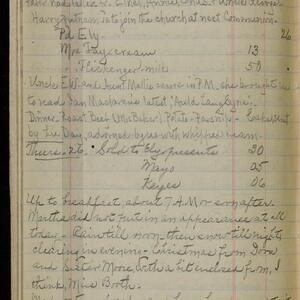 Harry Putnam to join the church at next Communion.
Pd Ely 26
Mrs Fay cream 13
Flickenger milk 50
Uncle Ed and Aunt Mollie were in P.M. she brought us
to read Ian Maclaren's latest, "Auld Lang Syne".
Dinner. Roast Beef (Mrs Baker), Potato, Parsnip
by Tu Day, adorned by us with whipped cream.
Thurs. 26. Sold to Ely presents 30
Mayo 05
Keyes 06
Up to breakfast, about 7 A.M. or soon after.
Martha did not put in an appearance at all
today - Rain till noon, then snow till night,
clearing in evening - Christmas from Dora
and Sister Moore, with a bit enclosed from, I
think, Miss Booth.